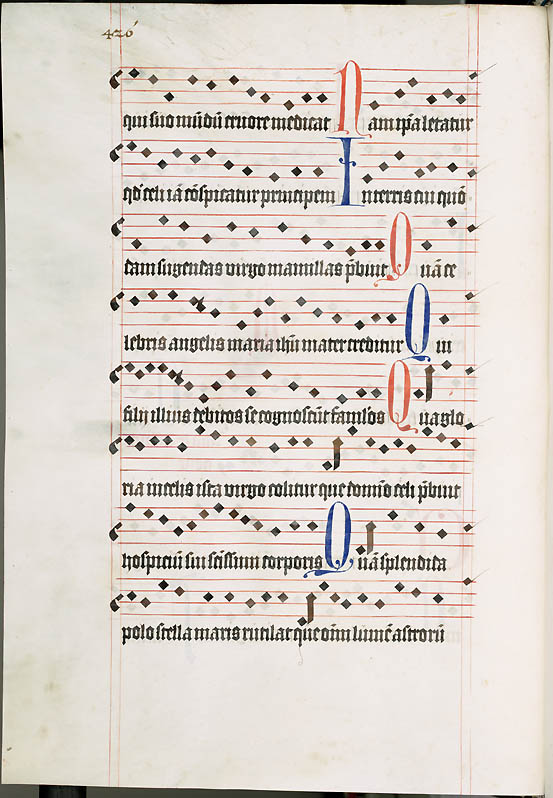 426
qui suo mūdū cruore medicat Nam ip̄a letatur
qd̕ celi iā cōspicatur principem In terris cui quō
dam sugendas virgo mamillas p̄buit Quā ce
lebris angelis maria ihū mater creditur Qui
filij illius debitos se cognoscūt famlōs Qua glo
ria in celis ista virgo colitur que domīo celi p̄buit
hospiciū sui sc̄issium corporis Quā splendida
polo stella maris rutilat que oīm lumē astrorū